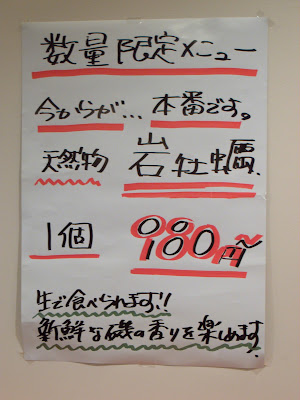 数量限定メニュー
今からが… 本番です。
天然物 岩牡蠣.
1個 980円～
生で食べられます!!
新鮮な磯の香りを楽しめます.